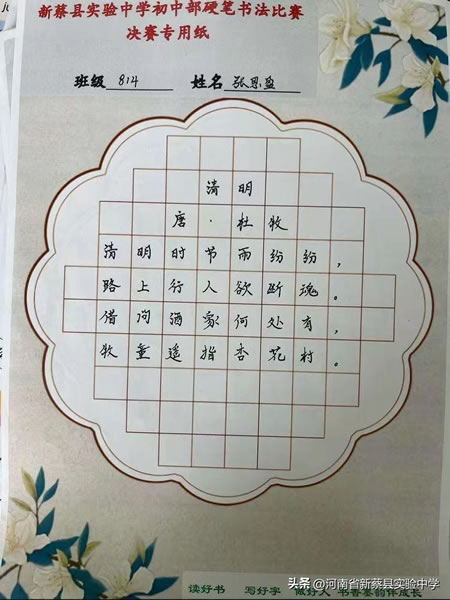 新蔡县实验中学初中部硬笔书法比赛
决赛专用纸
班级 814 姓名 张恩盈
清明
唐·杜牧
清明时节雨纷纷，
路上行人欲断魂。
借问酒家何处有，
牧童遥指杏花村。
读好书 写好字 做好人 书香墨韵伴成长
头条 @河南省新蔡县实验中学